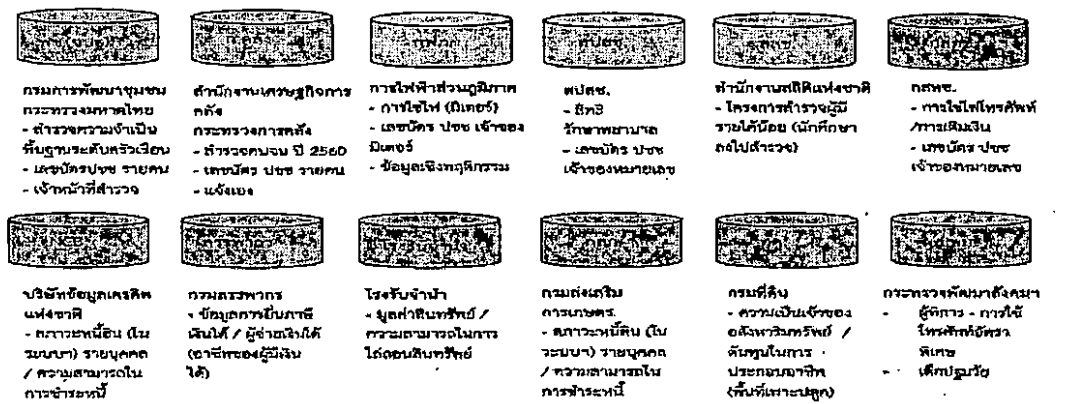 กรมการพัฒนาชุมชน
กระทรวงมหาดไทย
- สำรวจความจำเป็น
พื้นฐานระดับครัวเรือน
- เลขบัตรปชช รายคน
- เจ้าหน้าที่สำรวจ
สำนักงานเศรษฐกิจการ
คลัง
กระทรวงการคลัง
- สำรวจคนจน ปี 2560
- เลขบัตร ปชช รายคน
- แจ้งเอง
การไฟฟ้าส่วนภูมิภาค
- การใช้ไฟ (มิเตอร์)
- เลขบัตร ปชช เจ้าของ
มิเตอร์
- ข้อมูลเชิงพฤติกรรม
สปสช.
- สิทธิ
รักษาพยาบาล
- เลขบัตร ปชช
เจ้าของหมายเลข
สำนักงานสถิติแห่งชาติ
- โครงการสำรวจผู้มี
รายได้น้อย (นักศึกษา
ลงไปสำรวจ)
กสทช.
- การใช้โทรศัพท์
/การเติมเงิน
- เลขบัตร ปชช
เจ้าของหมายเลข
NCB
บริษัทข้อมูลเครดิต
แห่งชาติ
- สภาวะหนี้สิน (ใน
ระบบฯ) รายบุคคล
/ ความสามารถใน
การชำระหนี้
กรมสรรพากร
- ข้อมูลการยื่นภาษี
เงินได้ / ผู้จ่ายเงินได้
(อาชีพของผู้มีเงิน
ได้)
โรงรับจำนำ
- มูลค่าสินทรัพย์ /
ความสามารถในการ
ไถ่ถอนสินทรัพย์
กรมส่งเสริม
การเกษตร
- สภาวะหนี้สิน (ใน
ระบบฯ) รายบุคคล
/ ความสามารถใน
การชำระหนี้
กรมที่ดิน
- ความเป็นเจ้าของ
อสังหาริมทรัพย์ /
ต้นทุนในการ
ประกอบอาชีพ
(พื้นที่เพาะปลูก)
กระทรวงพัฒนาสังคมฯ
- ผู้พิการ - การใช้
โทรศัพท์อัตรา
พิเศษ
- เด็กปฐมวัย